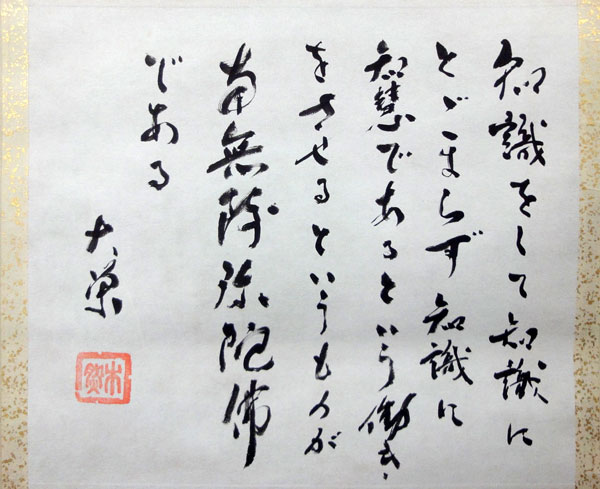 知識をして知識に
とゞまらず知識に
知慧であるという働き
をさせるというものが
南無阿弥陀佛
である
大榮